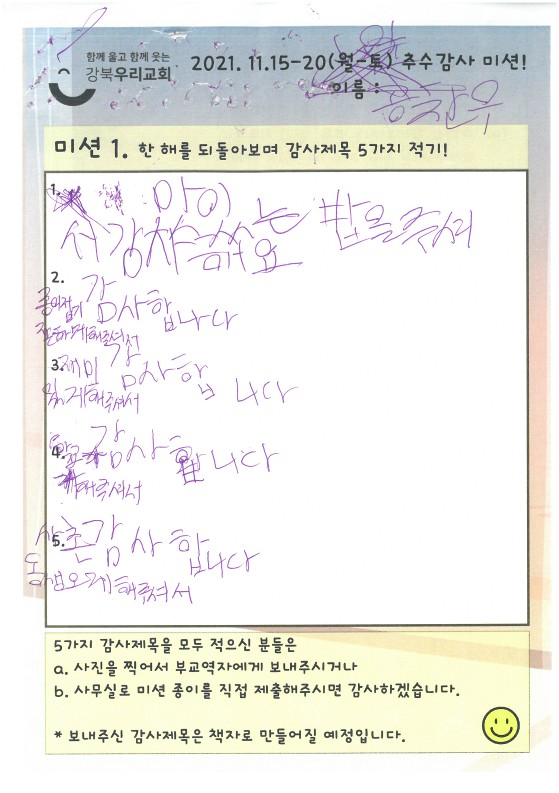 함께 울고 함께 웃는
강북우리교회
2021. 11.15-20(월-토) 추수감사 미션!
이름 :
미션 1. 한 해를 되돌아보며 감사제목 5가지 적기!
1.
맛있는 밥을 주셔
서 감사해요
2.
종이접기
잘하게해주셔서
감사합니다
3. 재미
있게해주셔서
감사합니다
4.
해주셔서
감사합니다
5. 사촌
동생오게해주셔서
감사합니다
5가지 감사제목을 모두 적으신 분들은
a. 사진을 찍어서 부교역자에게 보내주시거나
b. 사무실로 미션 종이를 직접 제출해주시면 감사하겠습니다.
* 보내주신 감사제목은 책자로 만들어질 예정입니다.